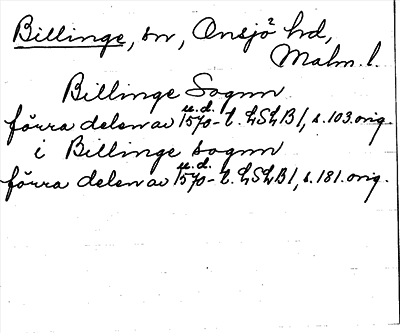 Billinge, sn, Onsjö hd,
Malm. l.
Billinge Sogn
förra delen av u.d. 1570-t. LSLB1, s.103.orig.
i Billinge sogn
förra delen av u.d. 1570-t. LSLB1, s.181.orig.